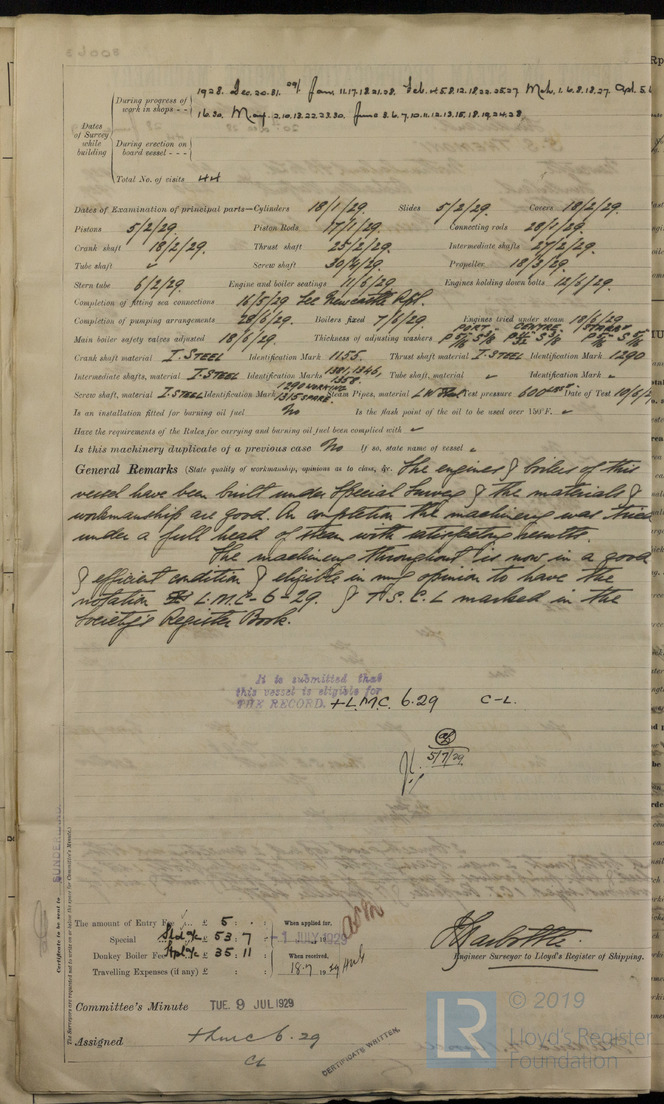 1928. Dec. 20. 31. 29/ Jan. 11. 17. 18. 21. 28. Feb. 4. 5. 8. 12. 18. 22. 25. 27. Mch. 1. 6. 8. 18. 27. Apl. 5.
During progress of work in shops - -
16. 30. May. 2. 10. 18. 22. 23. 30. June 3. 6. 7. 10. 11. 12. 13. 15. 18. 19. 24. 28.
Dates of Survey while building
During erection on board vessel - - -
Total No. of visits 44
Dates of Examination of principal parts—Cylinders 18/1/29. Slides 5/2/29. Covers 18/2/29.
Pistons 5/2/29. Piston Rods 17/1/29. Connecting rods 28/1/29.
Crank shaft 18/2/29. Thrust shaft 25/2/29. Intermediate shafts 27/2/29.
Tube shaft ✓ Screw shaft 30/4/29. Propeller 18/3/29.
Stern tube 6/2/29. Engine and boiler seatings 11/6/29. Engines holding down bolts 12/6/29.
Completion of fitting sea connections 16/5/29 See Newcastle Rpt.
Completion of pumping arrangements 28/6/29. Boilers fixed 7/6/29. Engines tried under steam 18/6/29.
PORT CENTRE STARB'D
Main boiler safety valves adjusted 18/6/29. Thickness of adjusting washers
Crank shaft material I. STEEL Identification Mark 1155. Thrust shaft material I. STEEL Identification Mark 1290
Intermediate shafts, material I. STEEL Identification Marks 1301, 1346, 1358. Tube shaft, material ✓ Identification Mark ✓
Screw shaft, material I. STEEL Identification Mark 1290 WORKING 1315 SPARE. Steam Pipes, material Test pressure 600 Date of Test 10/6/2
Is an installation fitted for burning oil fuel No Is the flash point of the oil to be used over 150°F. ✓
Have the requirements of the Rules for carrying and burning oil fuel been complied with ✓
Is this machinery duplicate of a previous case No If so, state name of vessel ✓
General Remarks (State quality of workmanship, opinions as to class, &c. The engines & boilers of this
vessel have been built under Special Survey & the materials &
workmanship are good. On completion the machinery was tried
under a full head of steam with satisfactory results.
The machinery throughout is now in a good
& efficient condition & eligible in my opinion to have the
notation L.M.C - 6 - 29. & T.S. C.L marked in the
Society's Register Book.
It is submitted that
this vessel is eligible for
THE RECORD. + L.M.C. 6.29 C-L.
5/7/29.
SUNDERLAND.
Certificate to be sent to
The amount of Entry Fee £ 5 : . :
Special £ 53 : 7
Donkey Boiler Fee £ 35 : 11
Travelling Expenses (if any) £ : :
When applied for,
-1 JULY 1929
When received,
18.7.1929
Engineer Surveyor to Lloyd's Register of Shipping.
Committee's Minute TUE. 9 JUL 1929
Assigned + Lmc 6.29
CL
CERTIFICATE WRITTEN.
LR © 2019
Lloyd's Register
Foundation